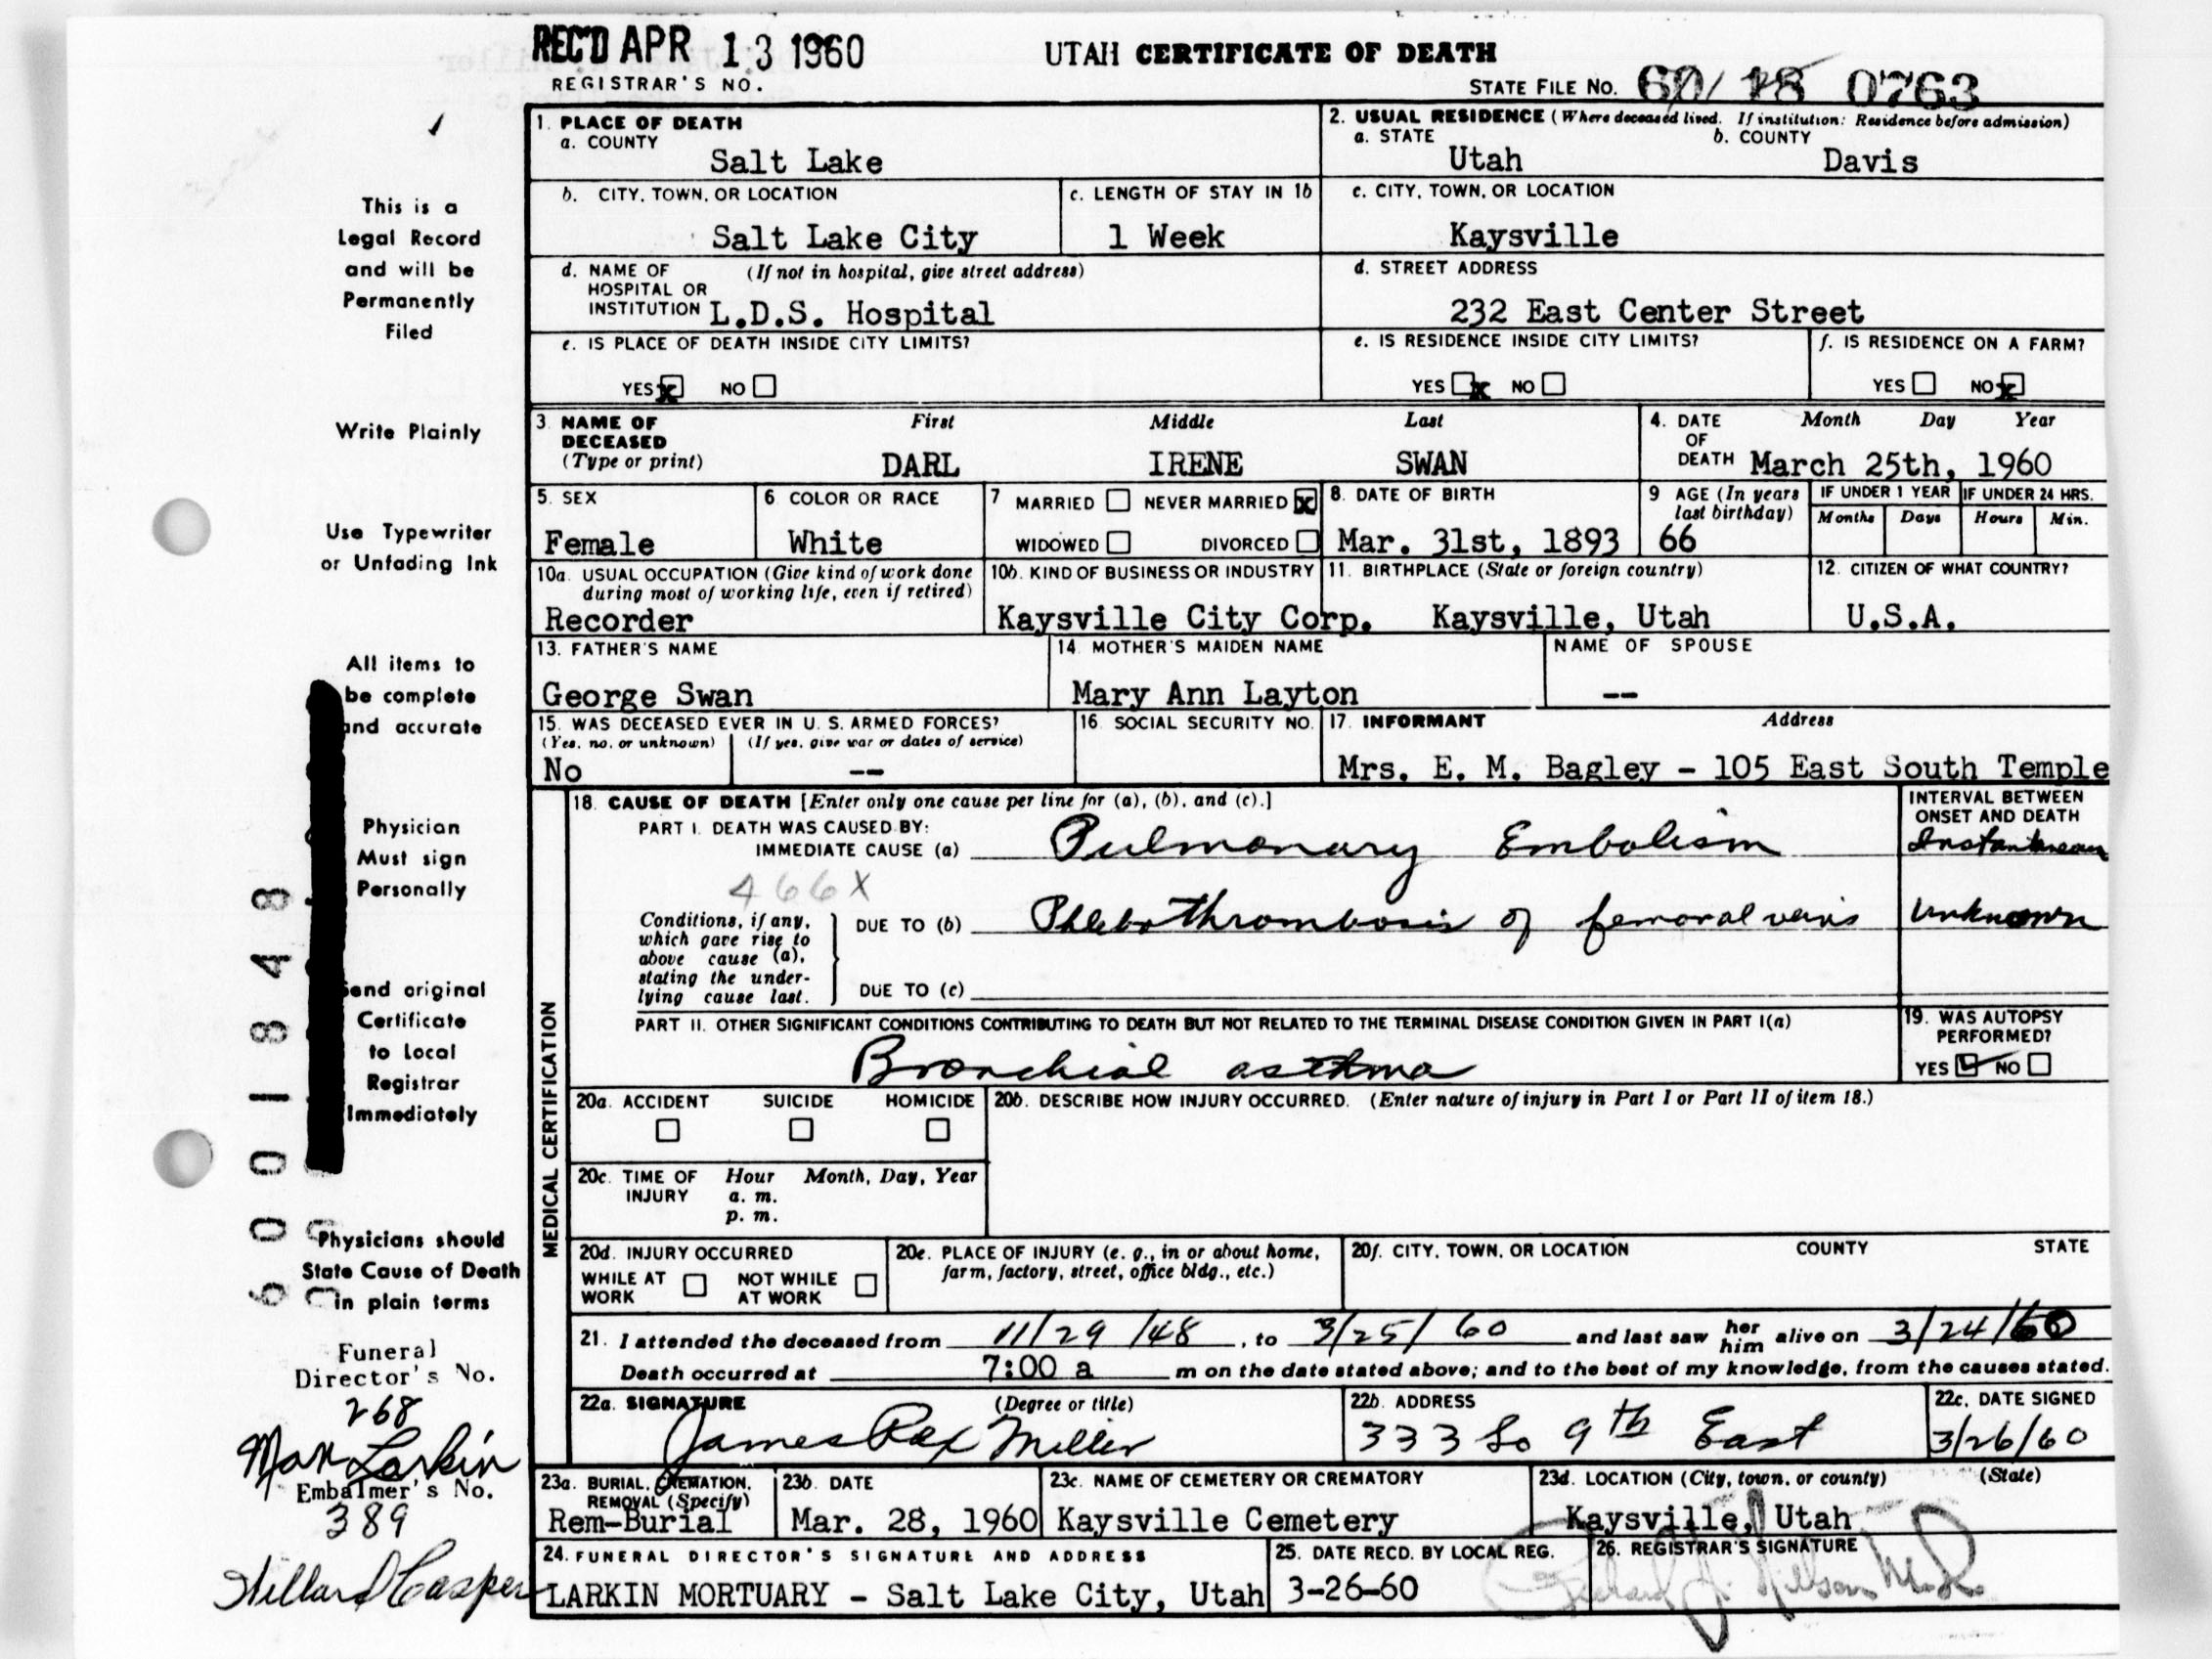 REC'D APR 13 1960
UTAH CERTIFICATE OF DEATH
REGISTRAR'S NO.
STATE FILE No. 60/ 18 0763
This is a
Legal Record
and will be
Permanently
Filed
Write Plainly
Use Typewriter
or Unfading Ink
All items to
be complete
and accurate
Physician
Must sign
Personally
Send original
Certificate
to Local
Registrar
Immediately
Physicians should
State Cause of Death
in plain terms
6 0 0 1 8 4 8
Funeral
Director's No.
268
Max Larkin
Embalmer's No.
389
Willard Casper
1. PLACE OF DEATH
a. COUNTY
Salt Lake
2. USUAL RESIDENCE (Where deceased lived. If institution: Residence before admission)
a. STATE b. COUNTY
Utah Davis
b. CITY, TOWN, OR LOCATION c. LENGTH OF STAY IN 1b
Salt Lake City 1 Week
c. CITY, TOWN, OR LOCATION
Kaysville
d. NAME OF (If not in hospital, give street address)
HOSPITAL OR
INSTITUTION L.D.S. Hospital
d. STREET ADDRESS
232 East Center Street
e. IS PLACE OF DEATH INSIDE CITY LIMITS?
YES x NO
e. IS RESIDENCE INSIDE CITY LIMITS?
YES x NO
f. IS RESIDENCE ON A FARM?
YES NO x
3. NAME OF First Middle Last
DECEASED
(Type or print) DARL IRENE SWAN
4. DATE Month Day Year
OF
DEATH March 25th, 1960
5. SEX
Female
6. COLOR OR RACE
White
7 MARRIED NEVER MARRIED x
WIDOWED DIVORCED
8. DATE OF BIRTH
Mar. 31st, 1893
9 AGE (In years
last birthday)
66
IF UNDER 1 YEAR IF UNDER 24 HRS.
Months Days Hours Min.
10a. USUAL OCCUPATION (Give kind of work done
during most of working life, even if retired)
Recorder
10b. KIND OF BUSINESS OR INDUSTRY
Kaysville City Corp.
11. BIRTHPLACE (State or foreign country)
Kaysville, Utah
12. CITIZEN OF WHAT COUNTRY?
U.S.A.
13. FATHER'S NAME
George Swan
14. MOTHER'S MAIDEN NAME
Mary Ann Layton
NAME OF SPOUSE
--
15. WAS DECEASED EVER IN U. S. ARMED FORCES?
(Yes, no, or unknown) (If yes, give war or dates of service)
No --
16. SOCIAL SECURITY NO.
17. INFORMANT Address
Mrs. E. M. Bagley - 105 East South Temple
MEDICAL CERTIFICATION
18. CAUSE OF DEATH [Enter only one cause per line for (a), (b), and (c).]
PART I. DEATH WAS CAUSED BY:
IMMEDIATE CAUSE (a) Pulmonary Embolism
INTERVAL BETWEEN
ONSET AND DEATH
Instantaneous
466X
Conditions, if any,
which gave rise to
above cause (a),
stating the under-
lying cause last.
DUE TO (b) Phlebothrombosis of femoral veins Unknown
DUE TO (c)
PART II. OTHER SIGNIFICANT CONDITIONS CONTRIBUTING TO DEATH BUT NOT RELATED TO THE TERMINAL DISEASE CONDITION GIVEN IN PART I(a)
Bronchial asthma
19. WAS AUTOPSY
PERFORMED?
YES ✓ NO
20a. ACCIDENT SUICIDE HOMICIDE
20b. DESCRIBE HOW INJURY OCCURRED. (Enter nature of injury in Part I or Part II of item 18.)
20c. TIME OF Hour Month, Day, Year
INJURY a. m.
p. m.
20d. INJURY OCCURRED
WHILE AT NOT WHILE
WORK AT WORK
20e. PLACE OF INJURY (e. g., in or about home,
farm, factory, street, office bldg., etc.)
20f. CITY, TOWN, OR LOCATION COUNTY STATE
21. I attended the deceased from 11/29/48, to 3/25/60 and last saw her him alive on 3/24/60
Death occurred at 7:00 a m on the date stated above; and to the best of my knowledge, from the causes stated.
22a. SIGNATURE (Degree or title)
James Rex Miller
22b. ADDRESS
333 So 9th East
22c. DATE SIGNED
3/26/60
23a. BURIAL, CREMATION,
REMOVAL (Specify)
Rem-Burial
23b. DATE
Mar. 28, 1960
23c. NAME OF CEMETERY OR CREMATORY
Kaysville Cemetery
23d. LOCATION (City, town, or county) (State)
Kaysville, Utah
24. FUNERAL DIRECTOR'S SIGNATURE AND ADDRESS
LARKIN MORTUARY - Salt Lake City, Utah
25. DATE RECD. BY LOCAL REG.
3-26-60
26. REGISTRAR'S SIGNATURE